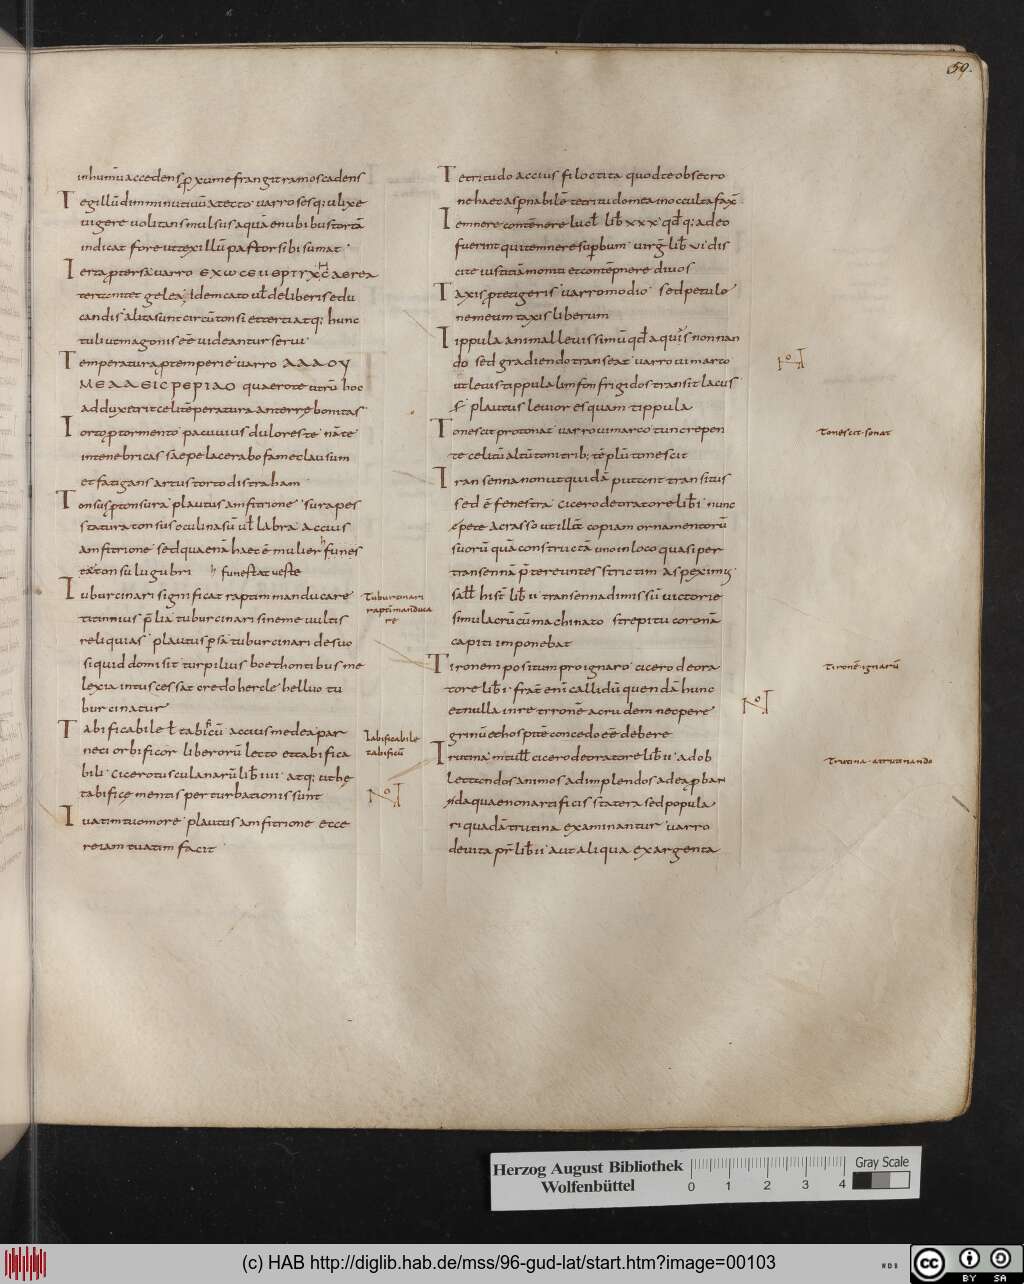 59.
inhumū accedens ꝑxume frangit ramos cadens
Tegillū diminutiuū a tecto varro sesq; ulixe
uigere uolitans mulsus aquā enubibus tortā
indicat fore ut tegillū pastor sibi sumat
Tertia ꝑ tersa varro
tertconter gelea Idem cato ul de liberis edu
candis alita sunt circūtonsi et terti atq; hunc
tuli ut magonis eē videantur serui
Temperatura ꝑ temperie varro
quaerote utrū hoc
adduxerit celi tēperatura an terrę bonitas
Torto ꝑ tormento pacuuius dulorestē nāte
in tenebricas saepe lacerabo fame clausum
et fatigans artus torto distraham
Tonsus ꝑ tonsura plautus amfitrione sura pes
statura tonsus oculi nasū ul labra accius
amfitrione sed quaenā haec ē mulier funes
ta tonsu lugubri h funestat ueste
Tuburcinari significat raptim manducare
titinnius p̄lia tuburcinari sineme uultis
reliquias plautus ꝑsa tuburcinari de suo
siquid domi sit turpilius boethontibus me
lexia intus cessat credo hercle helluo tu
burcinatur
Tabificabile ł tabicū accius medea par
neci orbificor liberorū lecto et tabifica
bili cicero tusculanarū lib iiii atq; uthę
tabificę mentis perturbationis sunt
Tuatim tuo more plautus amfitrione ecce
reiam tuatim facit
Tuburcinari
raptī manduca
re
Tabificabile
tabificū
Tetritudo accius filoctita quod te obsecro
ne haec aspnabilē tetritudo mea inocculta faxī
Temnere contēnere lucł lib xxx qd q; adeo
fuerint qui temnere supbum virg lib vi dis
cite iustitiā moniti et contēpnere diuos
Taxis ꝑ tetigeris varro modio sed petulo
neme um taxis liberum
Tippula animal leuissimū qd aquis non nan
do sed gradiendo transeat varro ui marco
ut leuis tippula limfon frigidos transit lacus
plautus leuior es quam tippula
Tonescit pro tonat varro ui marco tunc repen
te celitū altū tonitrib; tēplū tonescit
Transenna non ut quidā putant transitus
sed ē fenestra cicero de oratore lib i nunc
repete a crasso ut illā copiam ornamentorū
suorū quā constructā uno in loco quasi per
transennā p̄tereuntes strictim aspeximus
sall hist lib ii transenna dimissū victorie
simulacrū cū machinato strepitu coronā
capiti imponebat
Tironem positum pro ignaro cicero de ora
tore lib i frāt enī callidū quendā hunc
et nulla in re tironē ac rudem nec pere
grinū et hospitē concedo eē debere
Trutina m tull cicero de oratore lib ii ad ob
lectandos animos ad implendos ad eaꝑban
nda quae non artificis statera sed popula
ri quadā trutina examinantur varro
de uita pr lib ii aut aliqua exargenta
Tonescit · sonat
Tironē · ignarū
Trutina · a trutinando
Herzog August Bibliothek
Wolfenbüttel
0 1 2 3 4
Gray Scale
(c) HAB http://diglib.hab.de/mss/96-gud-lat/start.htm?image=00103
WDB
cc BY SA